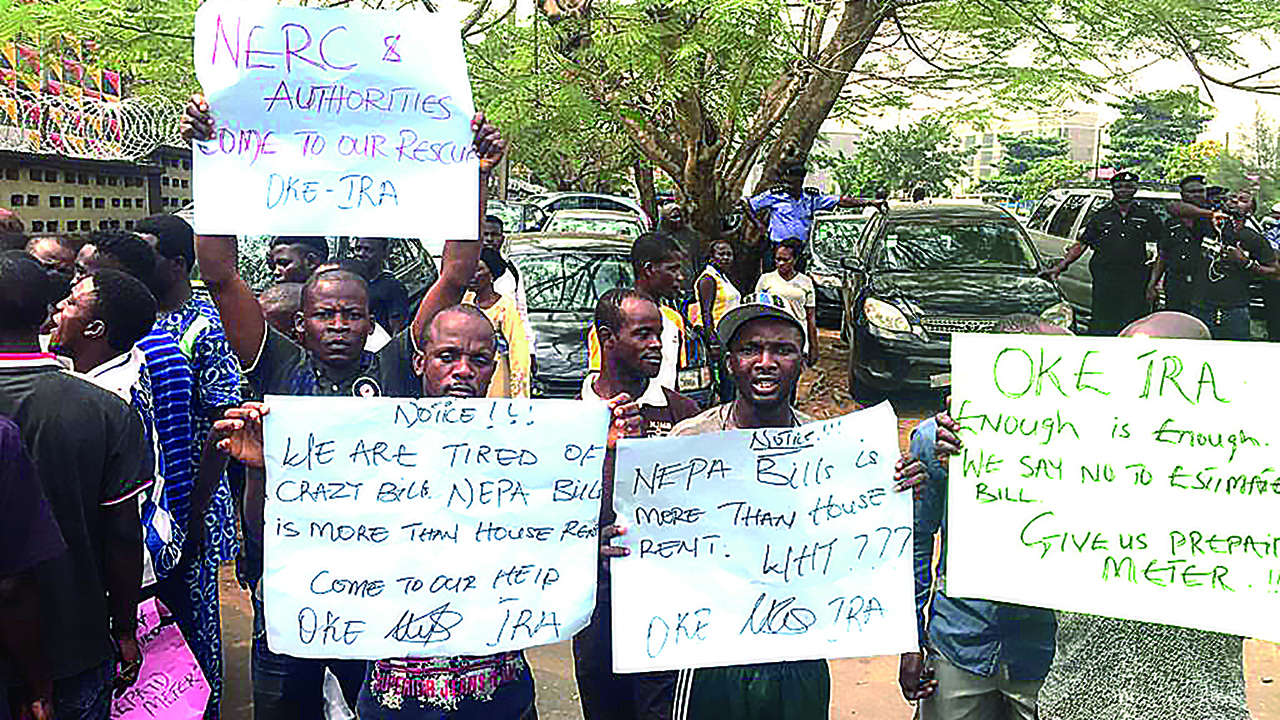 NERC &
AUTHORITIES
COME TO OUR RESCUE
OKE-IRA
NOTICE!!!
WE ARE TIRED OF
CRAZY BILL NEPA BILL
IS MORE THAN HOUSE RENT
COME TO OUR HELP
OKE IRA
NOTICE!!!
NEPA Bills is
MORE THAN HOUSE
RENT. WHY???
OKE IRA
OKE IRA
ENOUGH is ENOUGH.
WE SAY NO TO ESTIMATE
BILL
GIVE US PREPAID
METER.!!
METER!
SUPERIOR JEANS